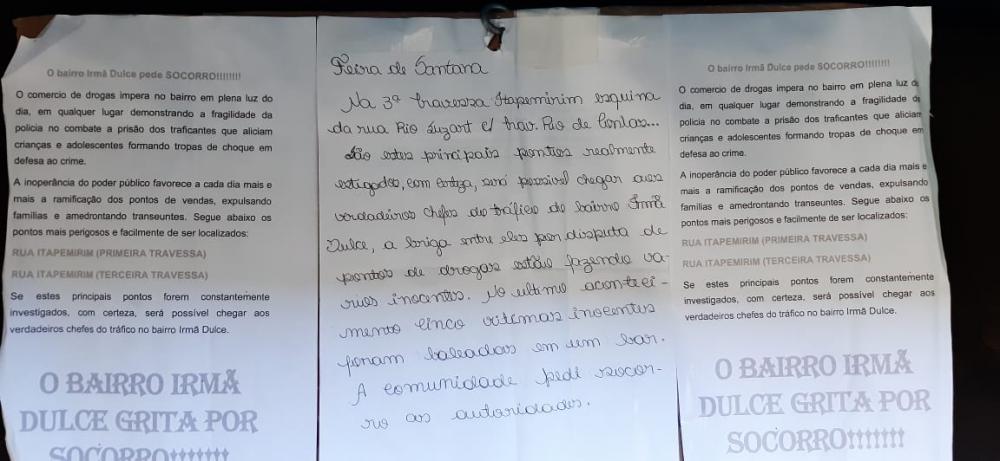 O bairro Irmã Dulce pede SOCORRO!!!!!!!!!
O comercio de drogas impera no bairro em plena luz do
dia, em qualquer lugar demonstrando a fragilidade da
policia no combate a prisão dos traficantes que aliciam
crianças e adolescentes formando tropas de choque em
defesa ao crime.
A inoperância do poder público favorece a cada dia mais e
mais a ramificação dos pontos de vendas, expulsando
famílias e amedrontando transeuntes. Segue abaixo os
pontos mais perigosos e facilmente de ser localizados:
RUA ITAPEMIRIM (PRIMEIRA TRAVESSA)
RUA ITAPEMIRIM (TERCEIRA TRAVESSA)
Se estes principais pontos forem constantemente
investigados, com certeza, será possível chegar aos
verdadeiros chefes do tráfico no bairro Irmã Dulce.
O BAIRRO IRMÃ
DULCE GRITA POR
SOCORRO!!!!!!!
Feira de Santana
Na 3ª travessa Itapemirim esquina
da rua Rio Suzart c/ trav. Rio de Contas...
São estes principais pontos realmente
será possivel chegar aos
verdadeiros chefes do tráfico do bairro Irmã
Dulce, a briga entre eles por disputa de
pontos de drogas estão fazendo va-
rios inocentes. No ultimo acontrei-
mento cinco vitimas inocentes
foram baleadas em um bar.
A comunidade pedi socor-
ro as autoridades.
O bairro Irmã Dulce pede SOCORRO!!!!!!!!!
O comercio de drogas impera no bairro em plena luz do
dia, em qualquer lugar demonstrando a fragilidade da
policia no combate a prisão dos traficantes que aliciam
crianças e adolescentes formando tropas de choque em
defesa ao crime.
A inoperância do poder público favorece a cada dia mais e
mais a ramificação dos pontos de vendas, expulsando
famílias e amedrontando transeuntes. Segue abaixo os
pontos mais perigosos e facilmente de ser localizados:
RUA ITAPEMIRIM (PRIMEIRA TRAVESSA)
RUA ITAPEMIRIM (TERCEIRA TRAVESSA)
Se estes principais pontos forem constantemente
investigados, com certeza, será possível chegar aos
verdadeiros chefes do tráfico no bairro Irmã Dulce.
O BAIRRO IRMÃ
DULCE GRITA POR
SOCORRO!!!!!!!